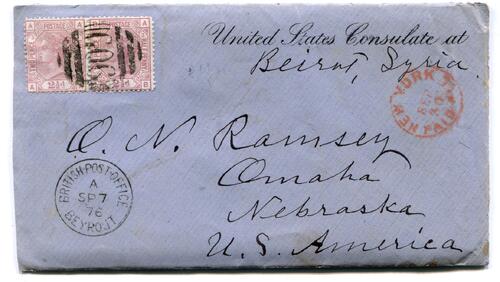 United States Consulate at
Beirut, Syria.
NEW YORK
PAID
O. N. Ramsey
Omaha
Nebraska
U.S. America
BRITISH-POST-OFFICE
A
SP 7
76
BEYROUT
POSTAGE